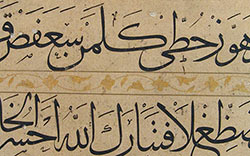 هوز حطى كلمن سعفص قر
ضظغلا فتبارك الله احسن الخا